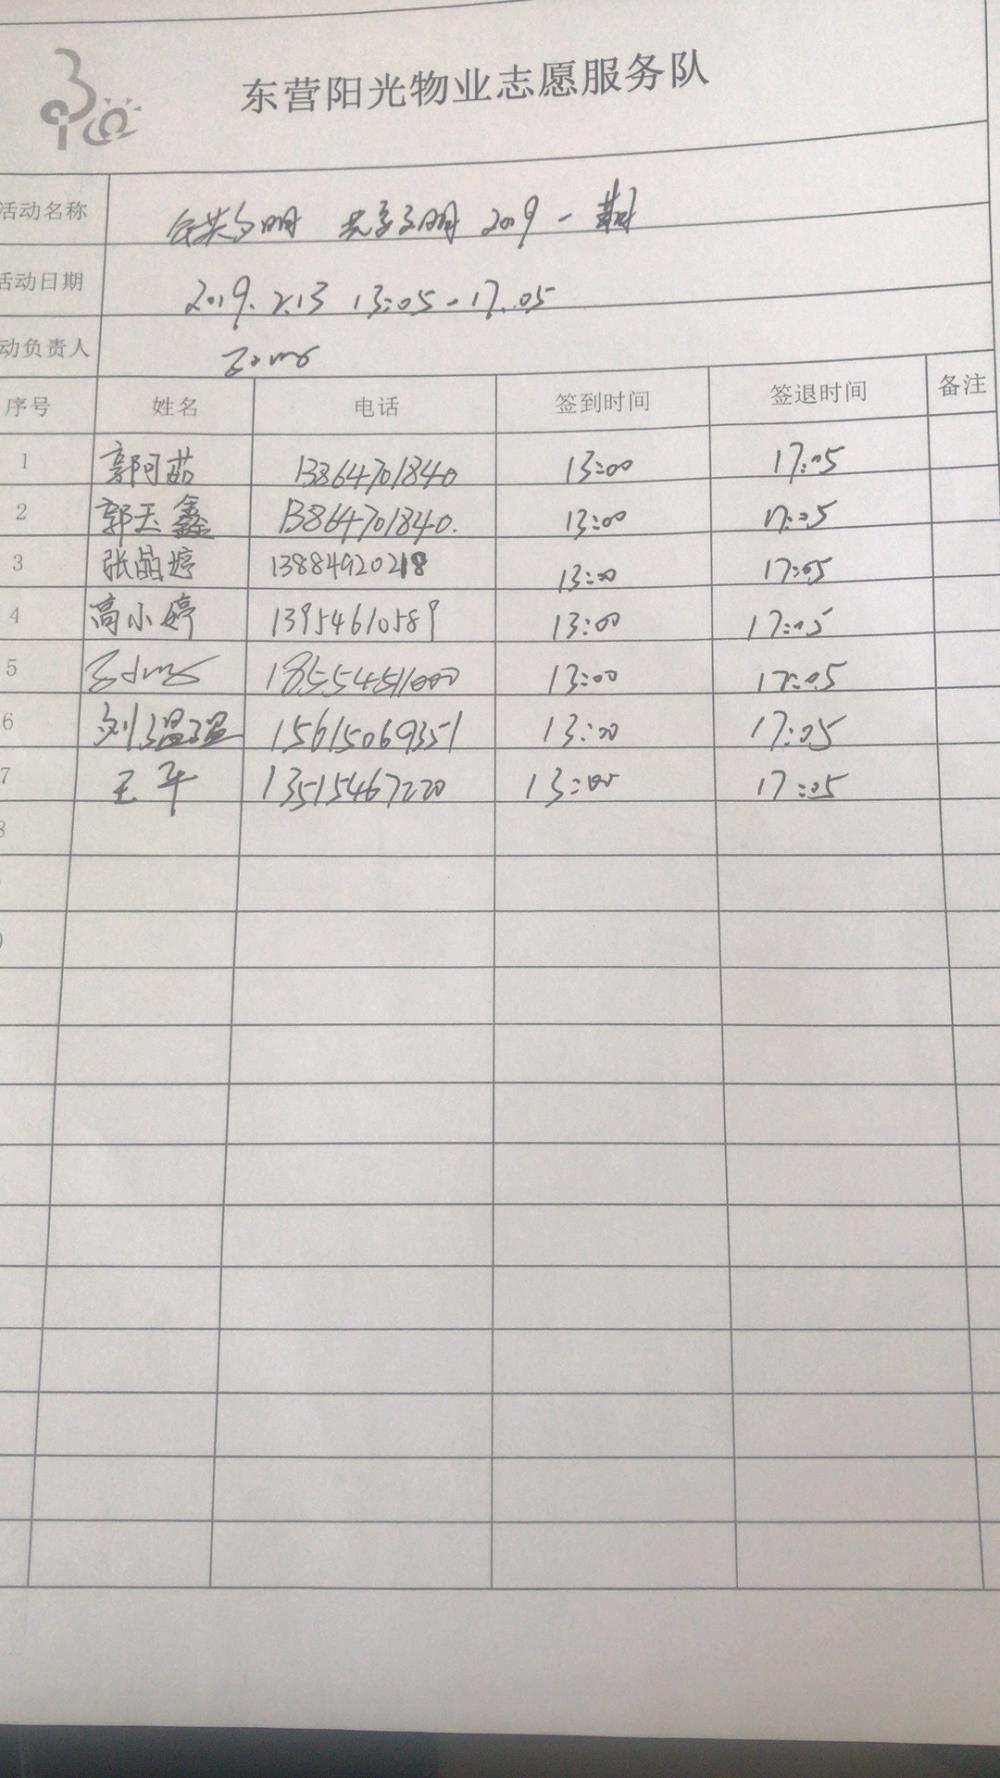 东营阳光物业志愿服务队
活动名称 文明 共享文明 2019 一期
活动日期 2019.2.13 13:05-17:05
动负责人
序号 姓名 电话 签到时间 签退时间 备注
1 郭可茹 13864701840 13:00 17:05
2 郭玉鑫 13864701840. 13:00 17:05
3 张晶婷 13884920218 13:00 17:05
4 高小婷 13954610589 13:00 17:05
5 18555451000 13:00 17:05
6 刘温温 15615069351 13:00 17:05
7 王平 13515467220 13:00 17:05
8